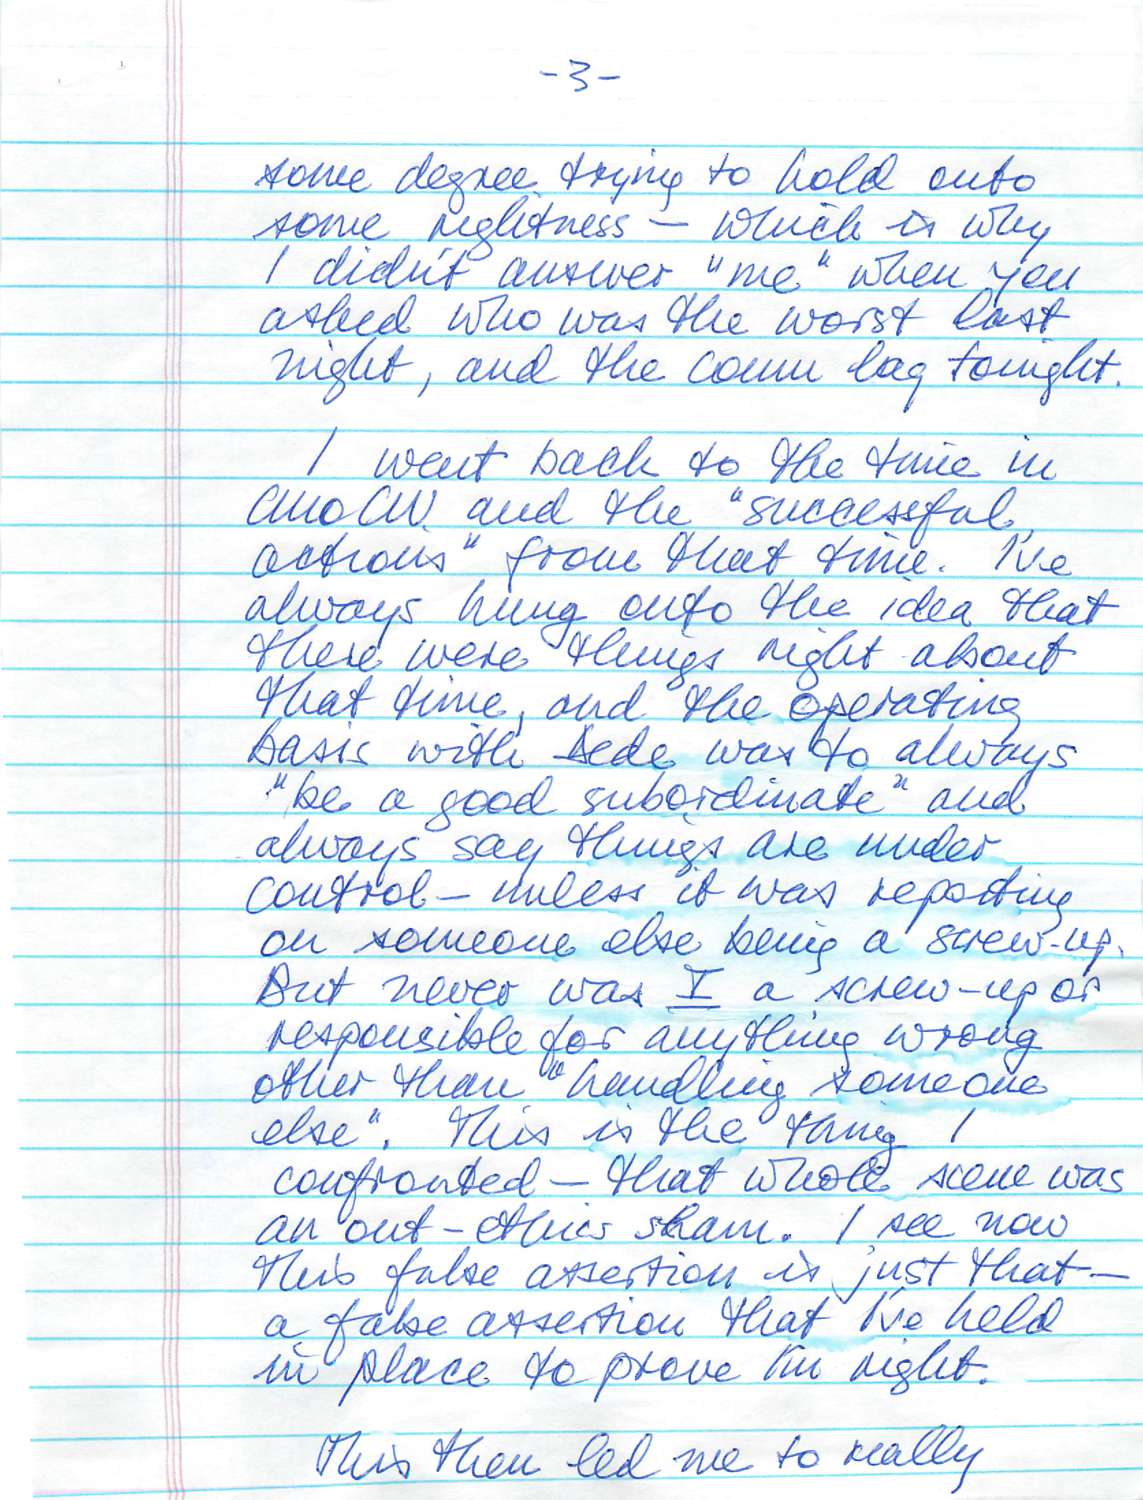 -3-
some degree trying to hold onto
some rightness — which is why
I didn't answer "me" when you
asked who was the worst last
night, and the comm lag tonight.
I went back to the time in
CMO CW and the "successful
actions" from that time. I've
always hung onto the idea that
there were things right about
that time, and the operating
basis with Dede was to always
"be a good subordinate" and
always say things are under
control — unless it was reporting
on someone else being a screw-up.
But never was I a screw-up or
responsible for anything wrong
other than "handling someone
else". This is the thing I
confronted — that whole scene was
an out-ethics sham. I see now
this false assertion is just that —
a false assertion that I've held
in place to prove I'm right.
This then led me to really